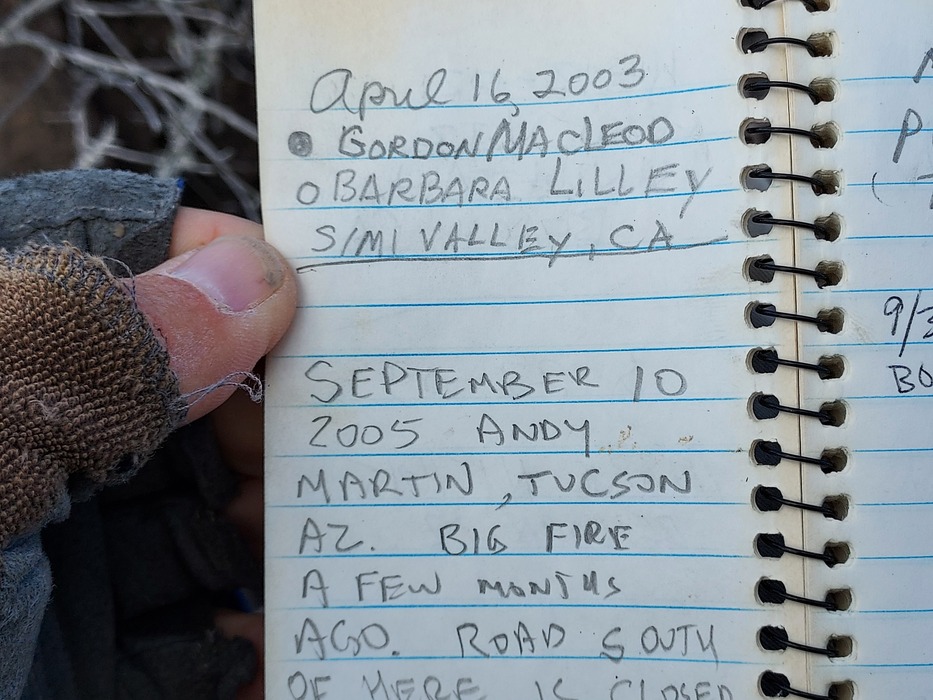 April 16, 2003
GORDON MACLEOD
O BARBARA LILLEY
SIMI VALLEY, CA
SEPTEMBER 10
2005 ANDY
MARTIN, TUCSON
AZ. BIG FIRE
A FEW MONTHS
AGO. ROAD SOUTH
OF HERE IS CLOSED
P
9/3
BO